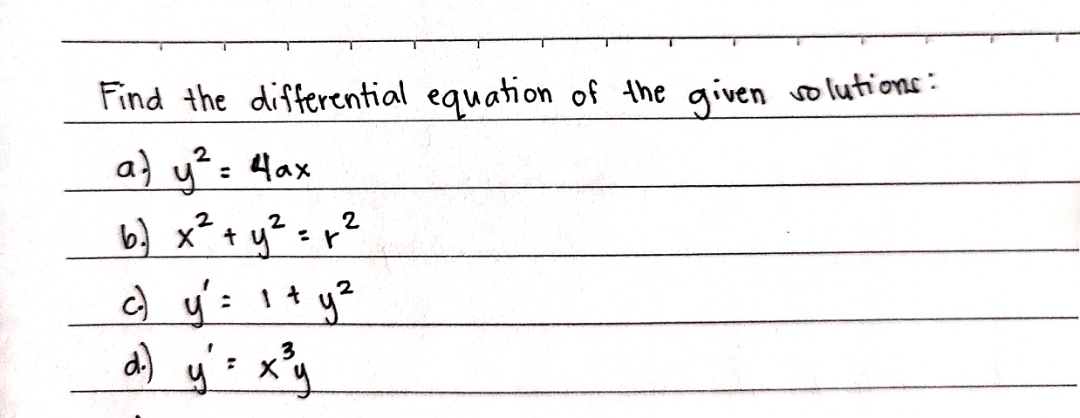 Find the differential equation of the given solutions:
a.) y² = 4ax
b.) x² + y² = r²
c.) y' = 1 + y²
d.) y' = x³y